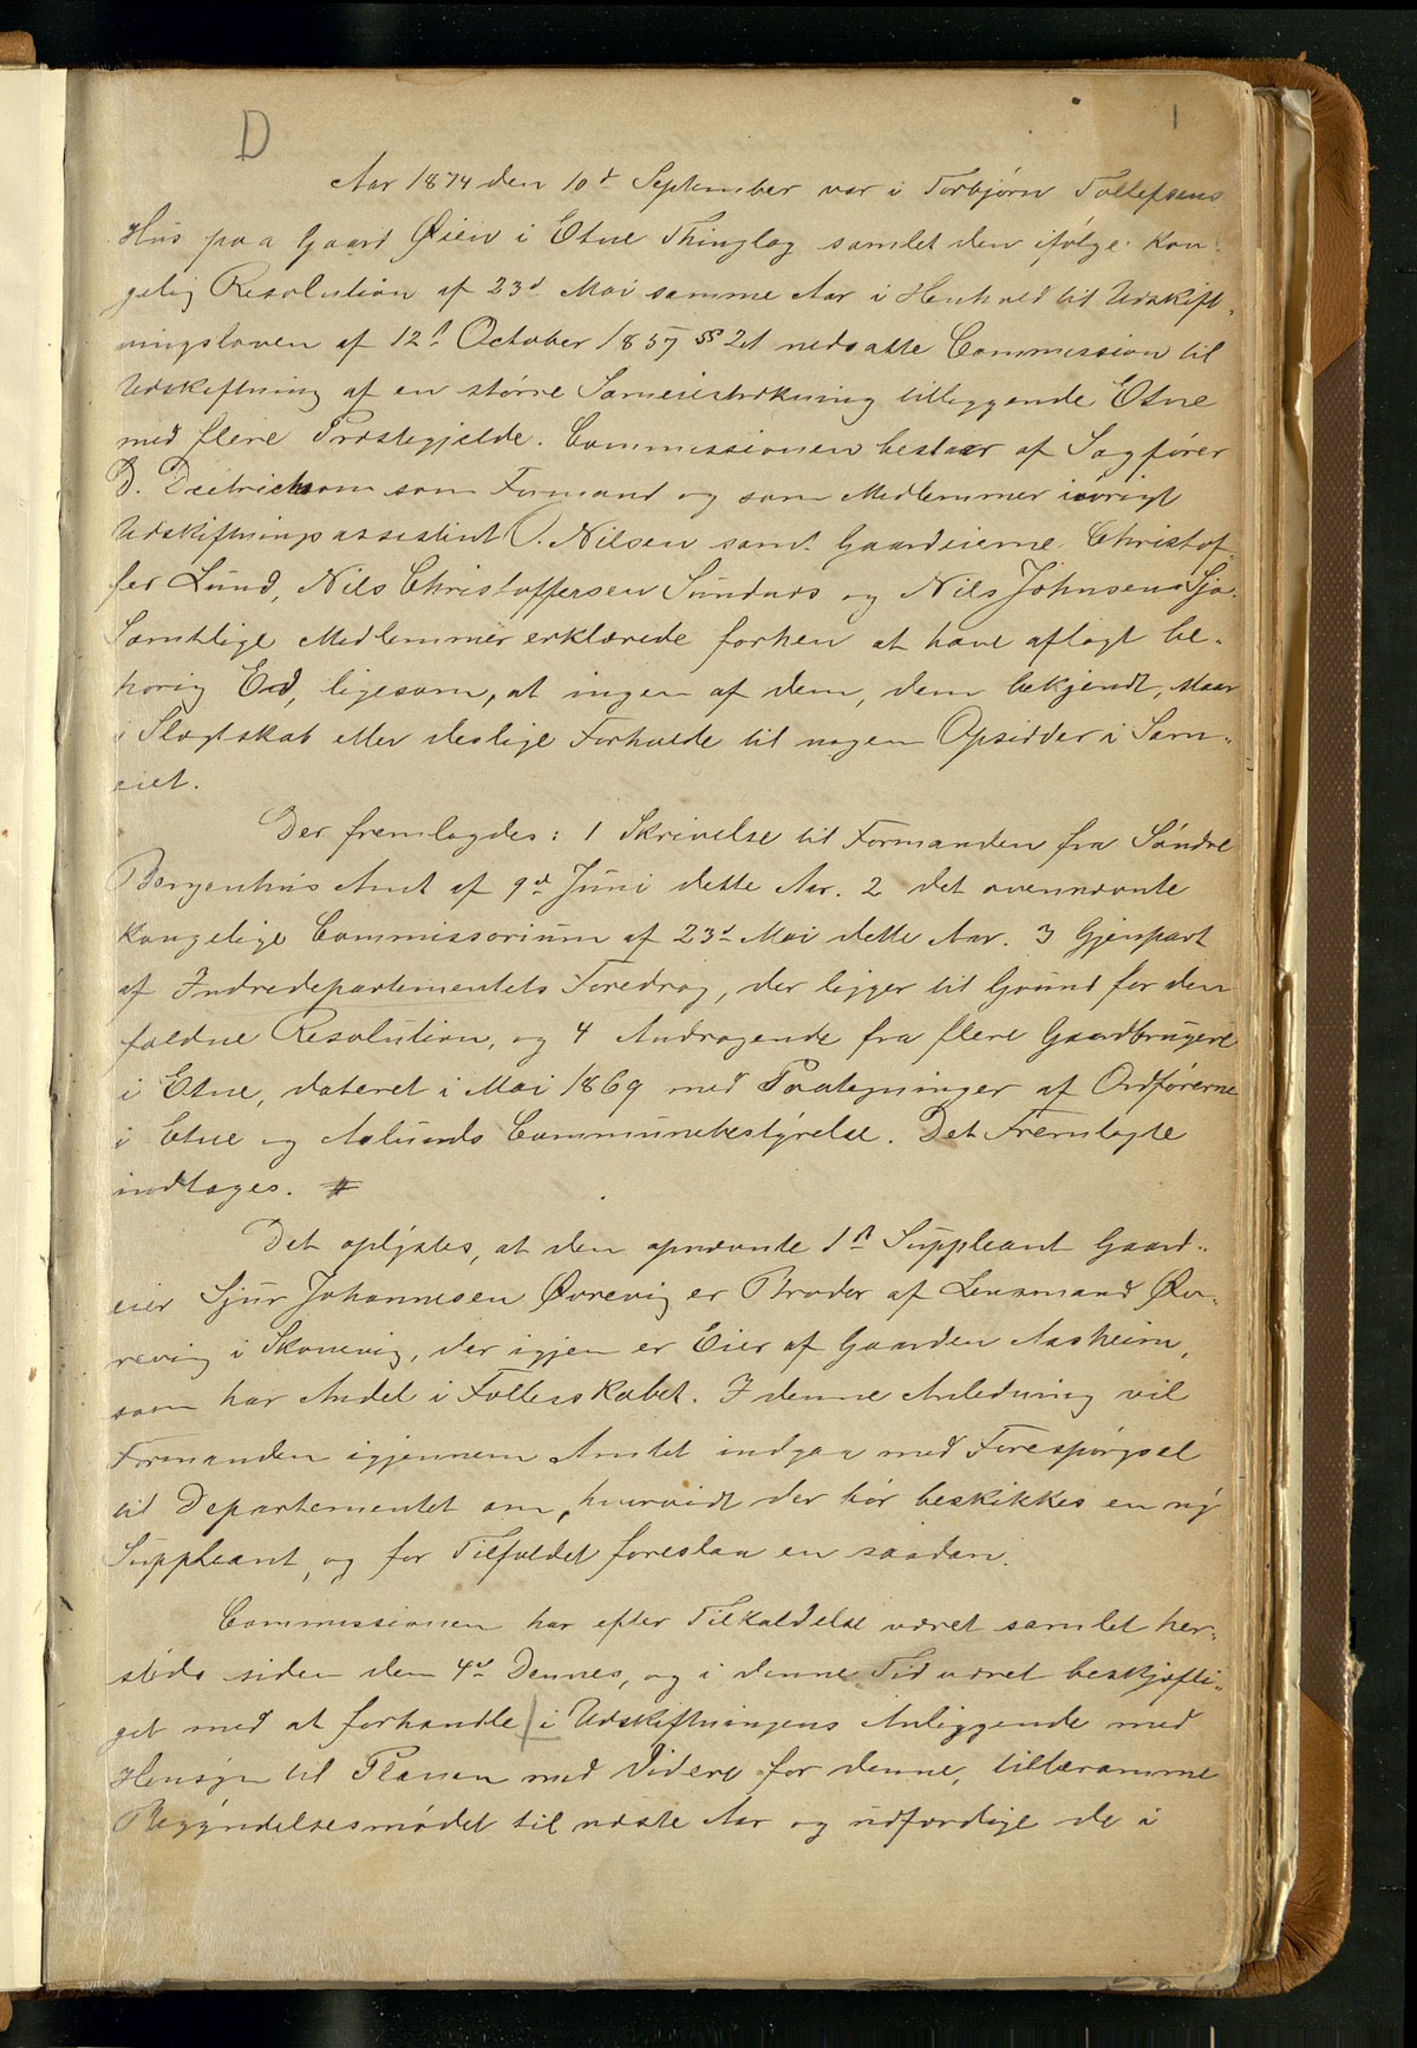 D
1
Aar 1874 den 10d September var i Torbjørn Tollefsens
Hus paa Gaard Øien i Etne Thinglag samlet den ifølge kon-
gelig Resolution af 23d Mai samme Aar i Henhold til Udskift-
ningsloven af 12t October 1857 § 21 nedsatte Commission til
Udskiftning af en større Sameiestrækning tilliggende Etne
med flere Præstegjelde. Commissionen bestaar af Sagfører
D. Dietrichson som Formand og som Medlemmer iøvrigt
Udskiftningsassistent O. Nilsen samt Gaardeierne Christof-
fer Lund, Nils Christoffersen Sundnæs og Nils Johnsen Sjo.
Samtlige Medlemmer erklærede forhen at have aflagt be-
hørig Ed, ligesom, at ingen af dem, dem bekjendt, staar
i Slægtskab eller deslige Forholde til nogen Opsidder i Sam-
eiet.
Der fremlagdes: 1 Skrivelse til Formanden fra Søndre
Bergenhus Amt af 9d Juni dette Aar. 2 det ovennævnte
kongelige Commissorium af 23d Mai dette Aar. 3 Gjenpart
af Indredepartementets Foredrag, der ligger til Grund for den
faldne Resolution, og 4 Andragende fra flere Gaardbrugere
i Etne, dateret i Mai 1869 med Paategninger af Ordførerne
i Etne og Aalunds Communebestyrelse. Det Fremlagte
indtages. #
Det oplystes, at den opnævnte 1st Suppleant Gaard-
eier Sjur Johannesen Øvrevig er Broder af Lensmand Øv-
revig i Skonevig, der igjen er Eier af Gaarden Aasheim,
som har Andel i Fællesskabet. I denne Anledning vil
Formanden igjennem Amtet indgaa med Forespørgsel
til Departementet om, hvorvidt der bør beskikkes en ny
Suppleant, og for Tilfældet foreslaa en saadan.
Commissionen har efter Tilkaldelse været samlet her-
steds siden den 4d Dennes, og i denne Tid været beskjæfti-
get med at forhandle i Udskiftningens Anliggende med
Hensyn til Planen med Videre for denne, tilberamme
Begyndelsesmødet til næste Aar og udfærdige de i